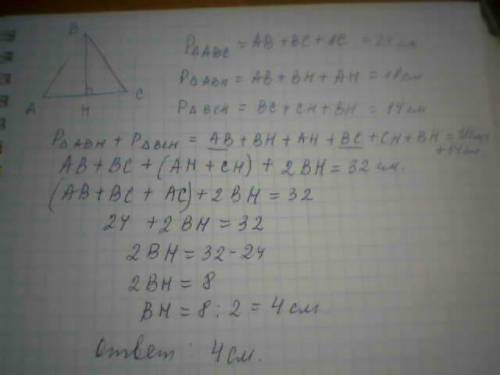 B
A H C
P△ABC = AB + BC + AC = 24 см
P△ABH = AB + BH + AH = 18 см
P△BCH = BC + CH + BH = 14 см
P△ABH + P△BCH = AB + BH + AH + BC + CH + BH =
+ 14 см
AB + BC + (AH + CH) + 2BH = 32 см.
(AB + BC + AC) + 2BH = 32
24 + 2BH = 32
2BH = 32 - 24
2BH = 8
BH = 8 : 2 = 4 см
Ответ : 4 см.